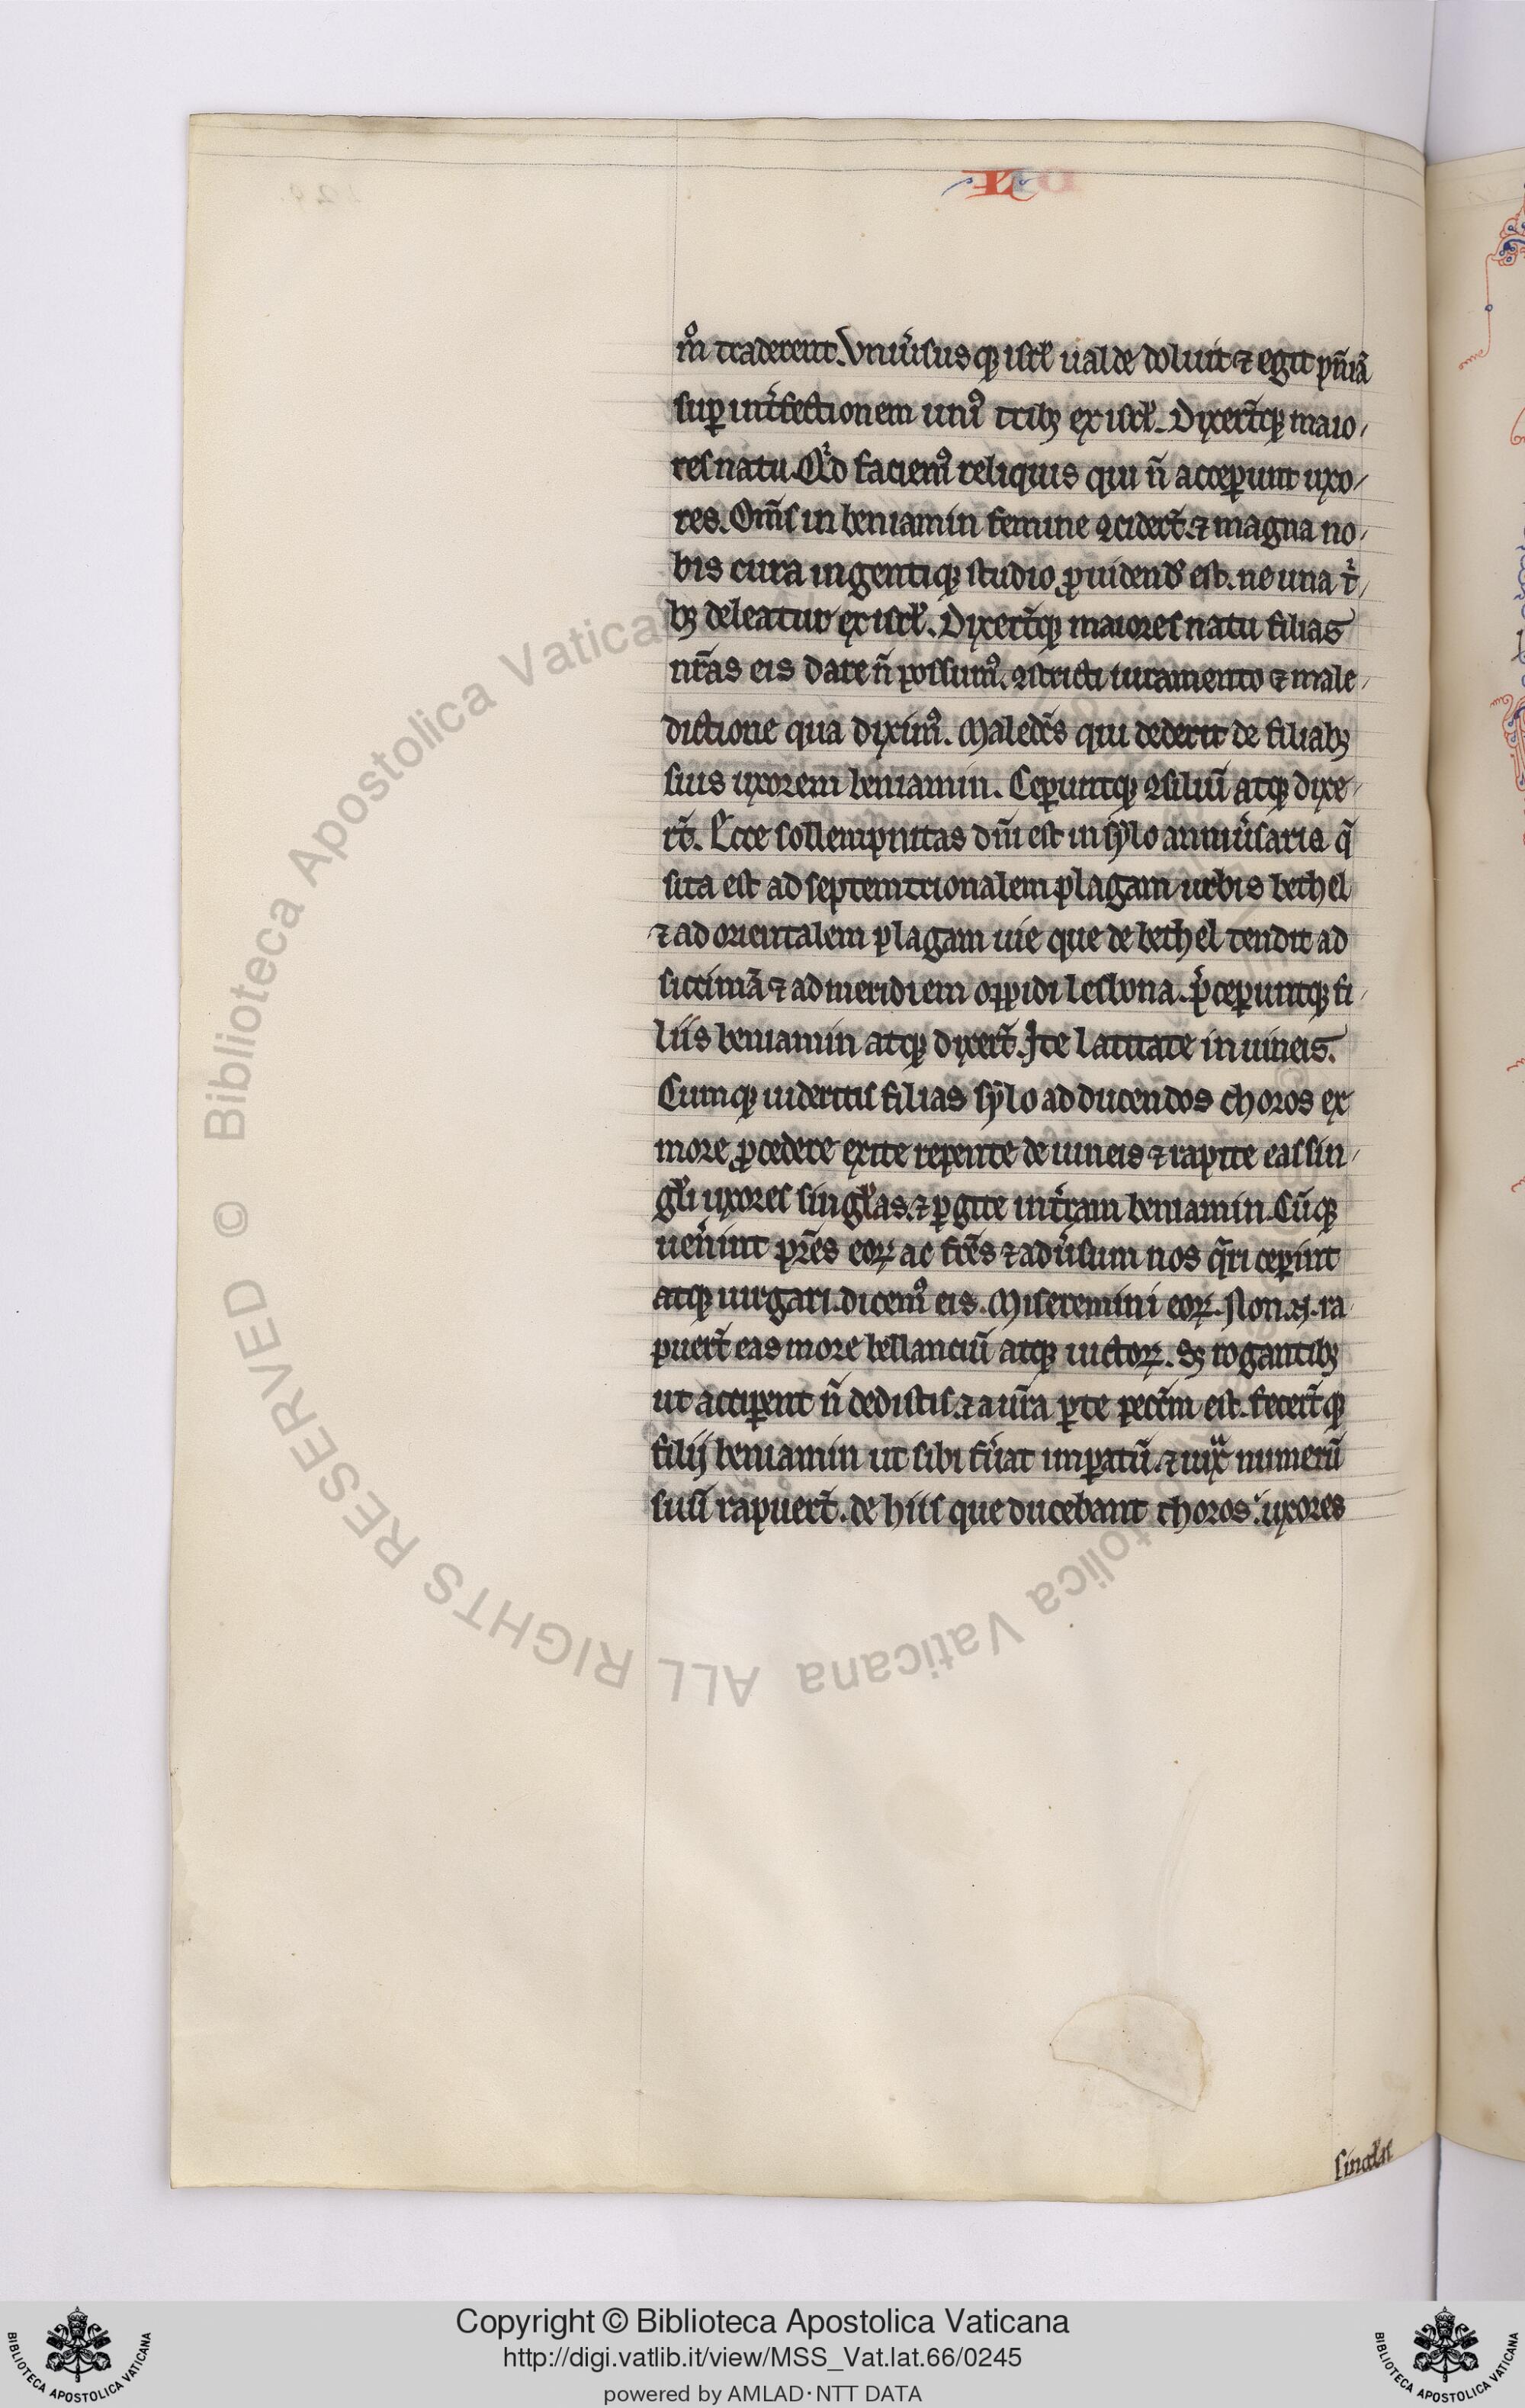 m̊ traderent. Vniũsusqꝫ isrł ualde doluit ⁊ egit pñiã
suꝑ int̾fectionem uniꝰ tribꝫ ex isrł. Dixer̃tqꝫ maio
res natu. Qͥd faciemꝰ reliquis qui ñ acceꝑunt uxo
res. Om̃s in beniamin femine ꝯcider̃t. ⁊ magna no
bis cura ingentiqꝫ studio ꝓuidend̾ est. ne una tͥ
bꝫ deleatur ex isrł. Dixer̃tqꝫ maiores natu filias
nr̃as eis dare ñ possumꝰ. ꝯstricti iuramento ⁊ male
dictione quã diximꝰ. Maledc̃s qui dederit de filiabꝫ
suis uxorem beniamin. Ceꝑuntqꝫ ꝯsiliũ atqꝫ dixe
rt̃. Ecce sollempnitas dñi est in sylo anniũsaria. q̃
sita est ad septemtrionalem plagam urbis bethel
⁊ ad orientalem plagam uie que de bethel tendit ad
siccimã ⁊ ad meridiem oppidi lesbona. p̾ceꝑuntqꝫ fi
liis beniamin atqꝫ dixer̃t. Ite latitate in uineis.
Cumqꝫ uideritis filias sylo ad ducendos choros ex
more ꝓcedere exite repente de uineis ⁊ rapite eas sin
głi uxores singłas. ⁊ ꝑgite in t̾ram beniamin. Cũqꝫ
uen̾int pr̃es eoꝝ ac fr̃es ⁊ adũsum nos q̃ri ceꝑint
atqꝫ iurgari. dicemꝰ eis. Miseremini eoꝝ. Non .n. ra
puer̃t eas more bellanciũ atqꝫ uictoꝝ. sꝫ rogantibꝫ
ut acciꝑent ñ dedistis. ⁊ a ur̃a ꝑte pecc̃m est. fecer̃tqꝫ
filij beniamin ut sibi fũat imꝑatũ. ⁊ iuxͣ numerũ
suũ rapuer̃t. de hiis que ducebant choros. uxores
singłas
Copyright © Biblioteca Apostolica Vaticana
http://digi.vatlib.it/view/MSS_Vat.lat.66/0245
powered by AMLAD·NTT DATA
BIBLIOTECA APOSTOLICA VATICANA
BIBLIOTECA APOSTOLICA VATICANA
© Biblioteca Apostolica Vaticana ALL RIGHTS RESERVED